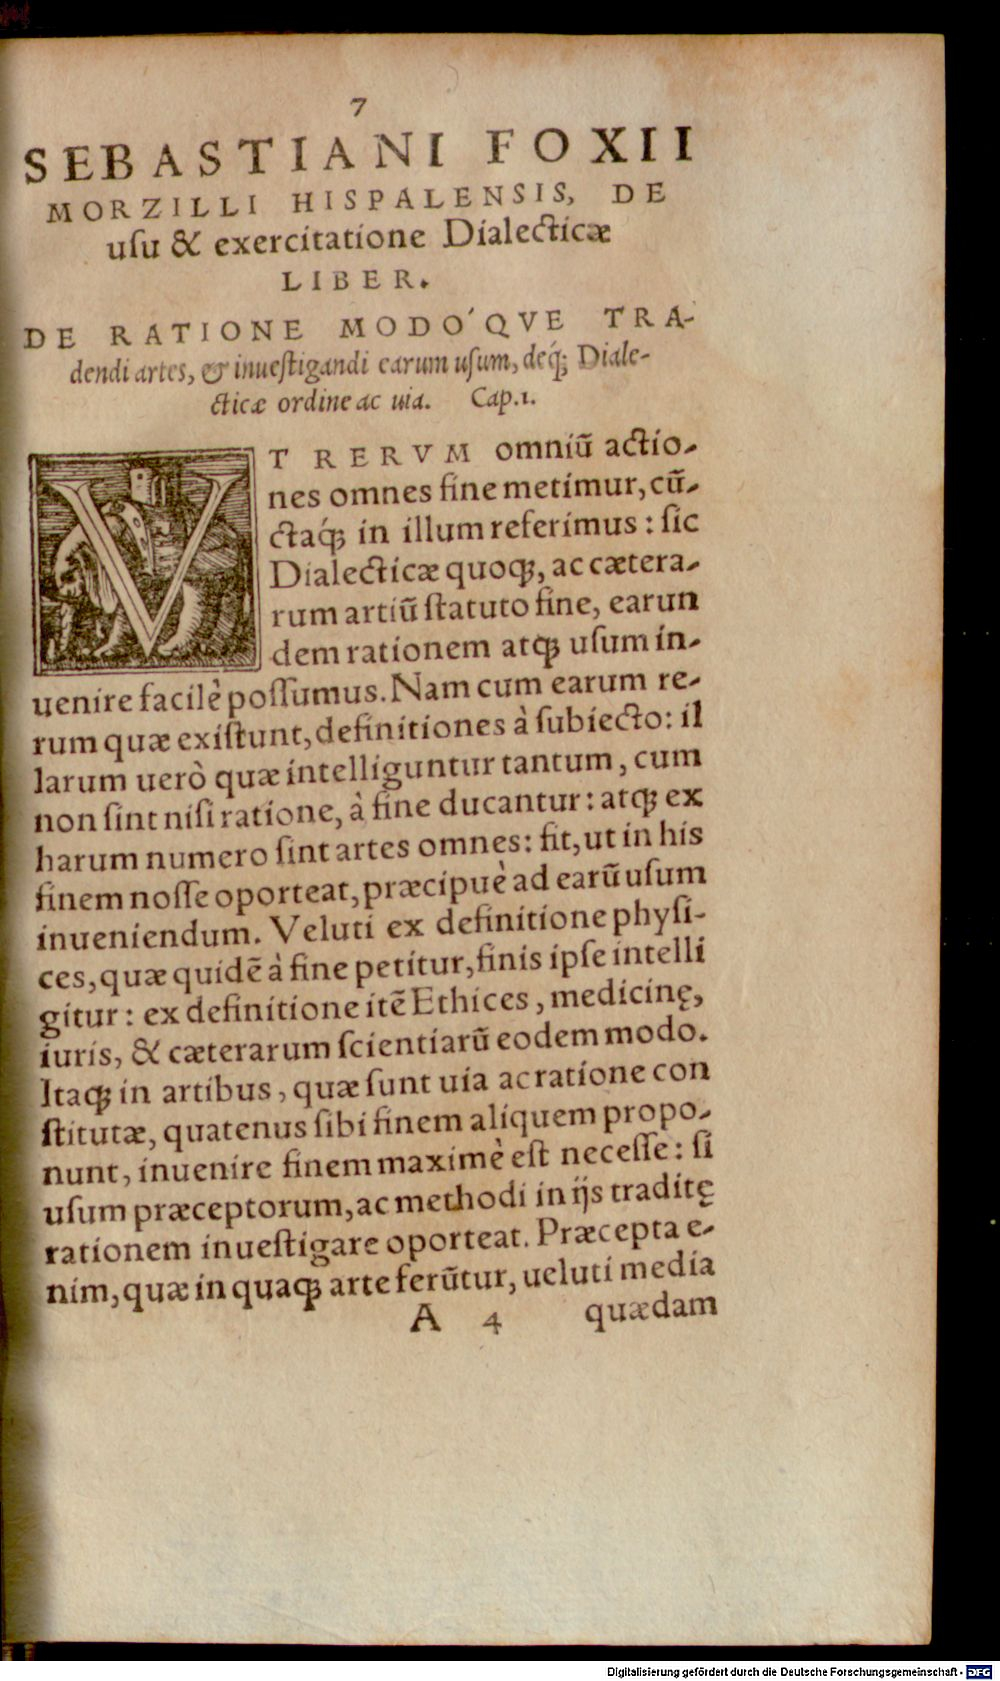 7
SEBASTIANI FOXII
MORZILLI HISPALENSIS, DE
uſu & exercitatione Dialecticæ
LIBER.
DE RATIONE MODO´QVE TRA-
dendi artes, & inueſtigandi earum uſum, deq́; Diale-
cticæ ordine ac uia. Cap.1.
VT RERVM omniũ actio-
nes omnes fine metimur, cũ-
ctaq́; in illum referimus: ſic
Dialecticæ quoq;, ac cætera-
rum artiũ ſtatuto fine, earun
dem rationem atq; uſum in-
uenire facilè poſſumus. Nam cum earum re-
rum quæ exiſtunt, definitiones à ſubiecto: il
larum uerò quæ intelliguntur tantum, cum
non ſint niſi ratione, à fine ducantur: atq; ex
harum numero ſint artes omnes: fit, ut in his
finem noſſe oporteat, præcipuè ad earũ uſum
inueniendum. Veluti ex definitione phyſi-
ces, quæ quidẽ à fine petitur, finis ipſe intelli
gitur: ex definitione itẽ Ethices, medicinę,
iuris, & cæterarum ſcientiarũ eodem modo.
Itaq; in artibus, quæ ſunt uia ac ratione con
ſtitutæ, quatenus ſibi finem aliquem propo-
nunt, inuenire finem maximè eſt neceſſe: ſi
uſum præceptorum, ac methodi in ijs traditę
rationem inueſtigare oporteat. Præcepta e-
nim, quæ in quaq; arte ferũtur, ueluti media
A 4 quædam
Digitalisierung gefördert durch die Deutsche Forschungsgemeinschaft - DFG